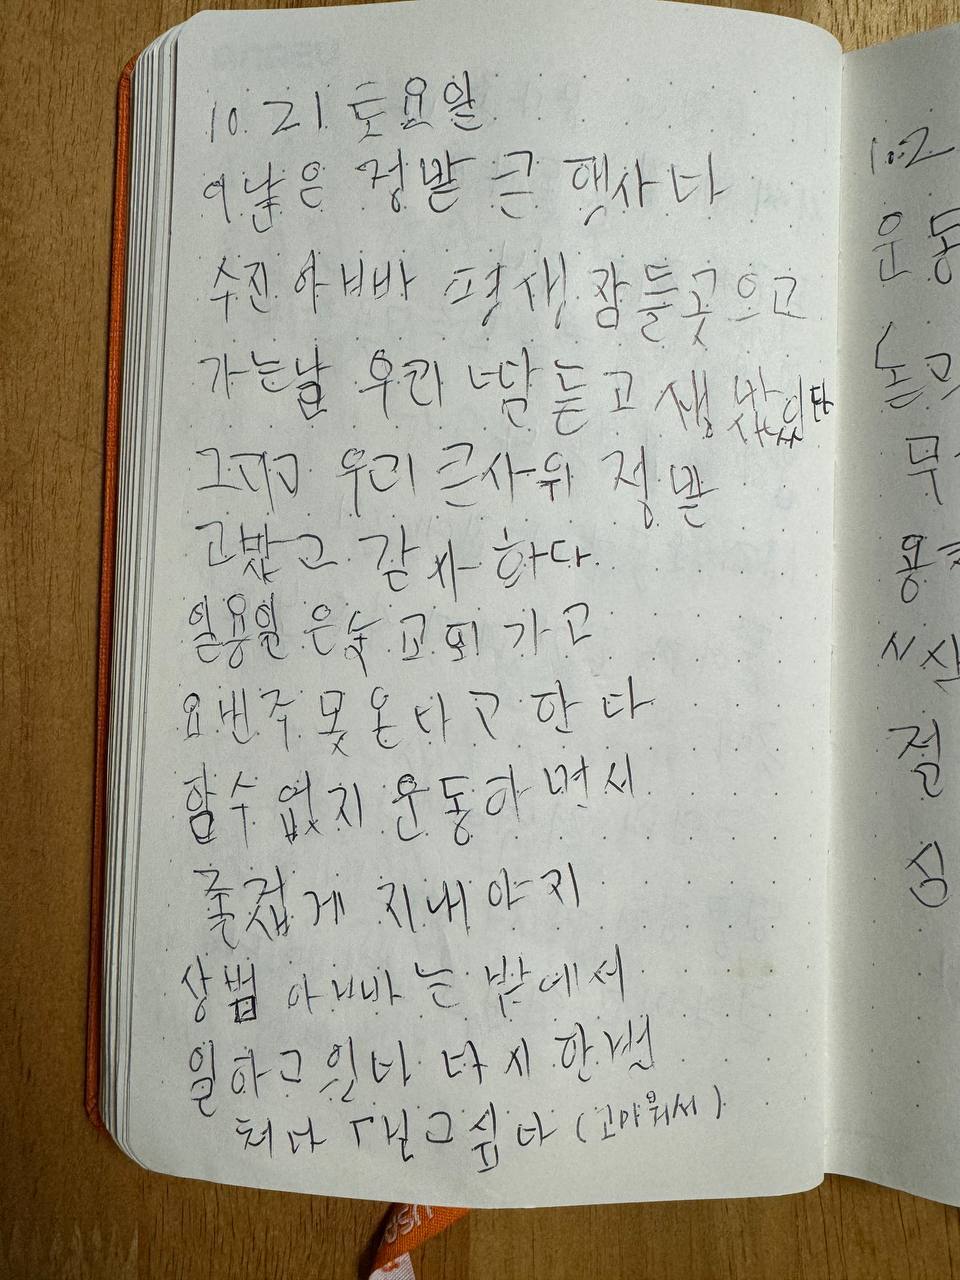 10. 21 토요일
이날은 정말 큰 행사다
수진 아빠바 평생 잠들곳으고
가는날 우리 너맘 듣고 생
그리고 우리 큰사위 정말
고맙고 감사하다
일용일 은숙 교회 가고
요번주 못온다고 한다
함수 없지 운동하면서
즐겁게 지내야지
상범 아빠바는 밖에서
일하고 있다 다시 한번
처다 싶다 (고마워서)
10.2
운동
무
용
절
심